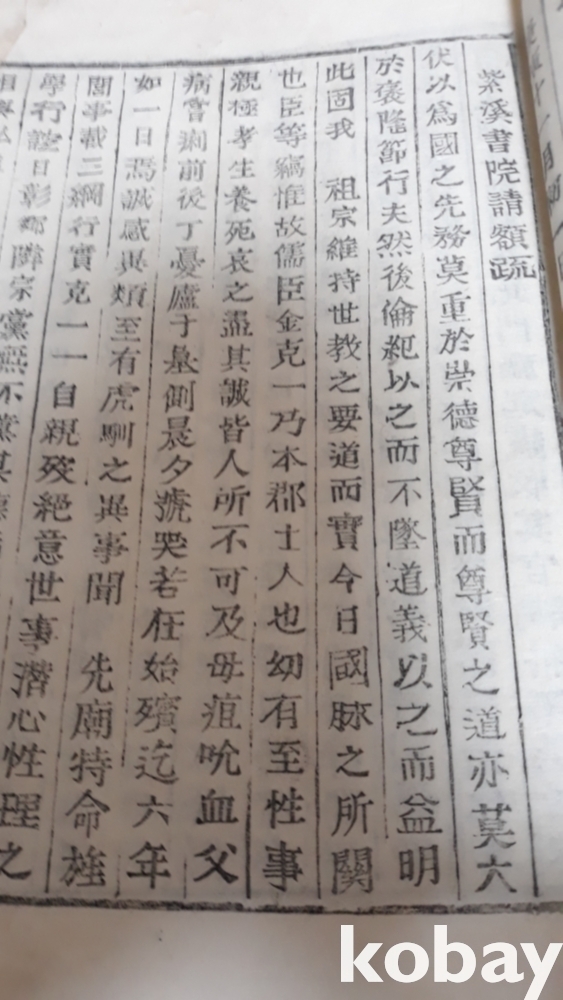 紫溪書院請額䟽
伏以爲國之先務莫重於崇德尊賢而尊賢之道亦莫大
於褒隆節行夫然後倫紀以之而不墜道義以之而益明
此固我 祖宗維持世教之要道而實今日國脉之所關
也臣等竊惟故儒臣金克一乃本郡士人也幼有至性事
親極孝生養死哀之盡其誠皆人所不可及母疽吮血父
病嘗痢前後丁憂廬于墓側晨夕號哭若在始殯迄六年
如一日焉誠感異類至有虎馴之異事聞 先廟特命旌
閭事載三綱行實克一一自親殁絕意世事潛心性理之
學行誼日彰鄉隣宗黨無不薰其
kobay